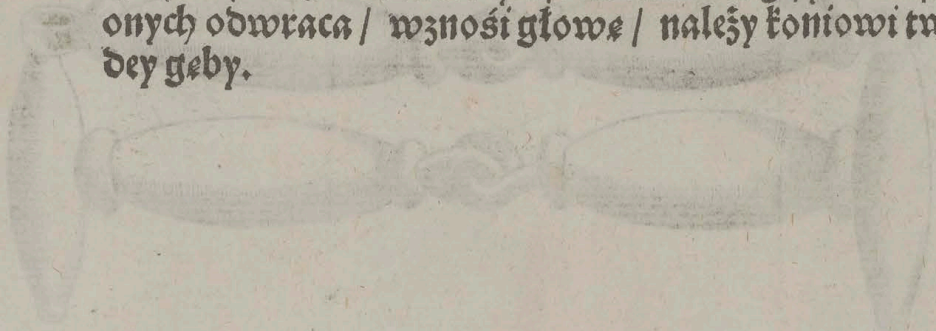 onych odwraca / wznośi głowę / należy koniowi tw
dey gęby.